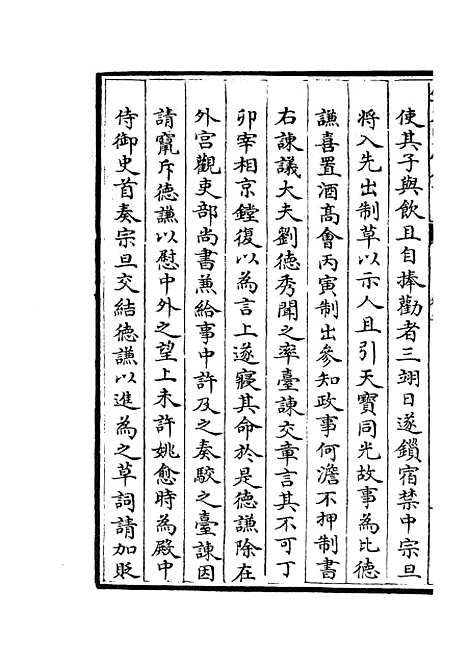 使其子與飲且自捧勸者三翊日遂鎖宿禁中宗旦
將入先出制草以示人且引天寶同光故事為比德
謙喜置酒髙會丙寅制出參知政事何澹不押制書
右諫議大夫劉德秀聞之率臺諫交章言其不可丁
卯宰相京鏜復以為言上遂寢其命於是德謙除在
外宫觀吏部尚書兼給事中許及之奏駮之臺諫因
請竄斥德謙以慰中外之望上未許姚愈時為殿中
侍御史首奏宗旦交結德謙以進為之草詞請加貶